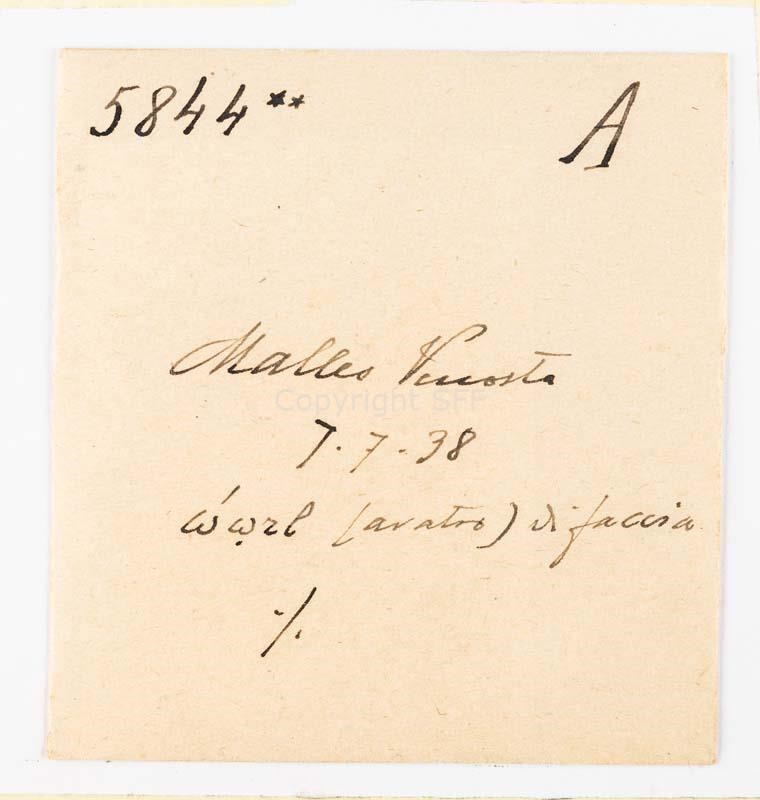 5844** A
Malles Venosta
Copyright SFF
7.7.38
(aratro) di faccia
./.